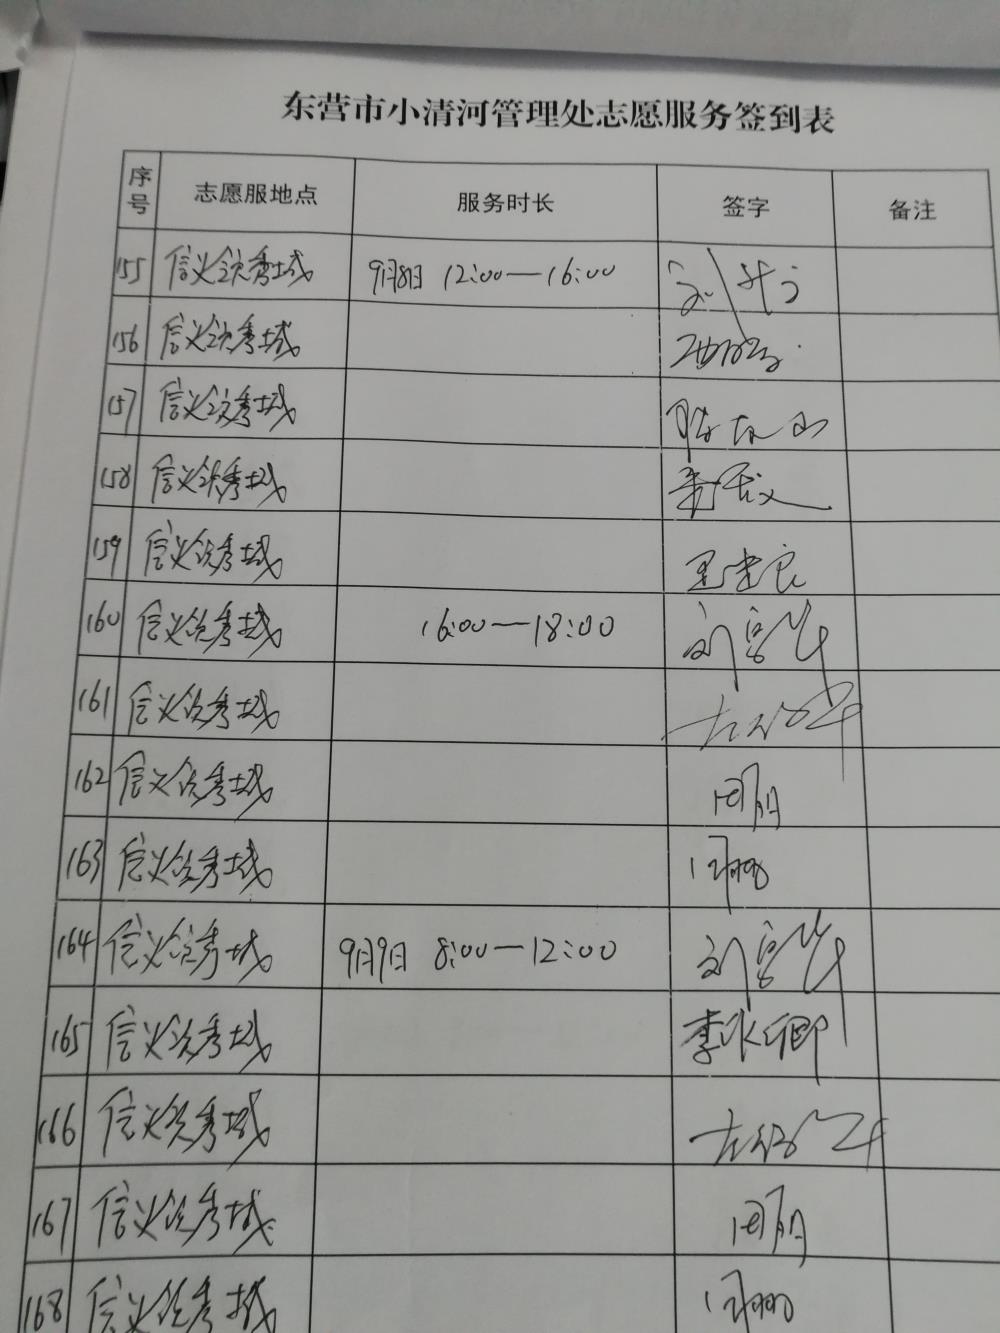 东营市小清河管理处志愿服务签到表
序号 志愿服地点 服务时长 签字 备注
155 信义领秀城 9月8日 12:00—16:00
156 信义领秀城
157 信义领秀城
158 信义领秀城
159 信义领秀城
160 信义领秀城 16:00—18:00 刘宫华
161 信义领秀城
162 信义领秀城 周朋
163 信义领秀城
164 信义领秀城 9月9日 8:00—12:00 刘宫华
165 信义领秀城 李冰卿
166 信义领秀城
167 信义领秀城 周朋
168 信义领秀城